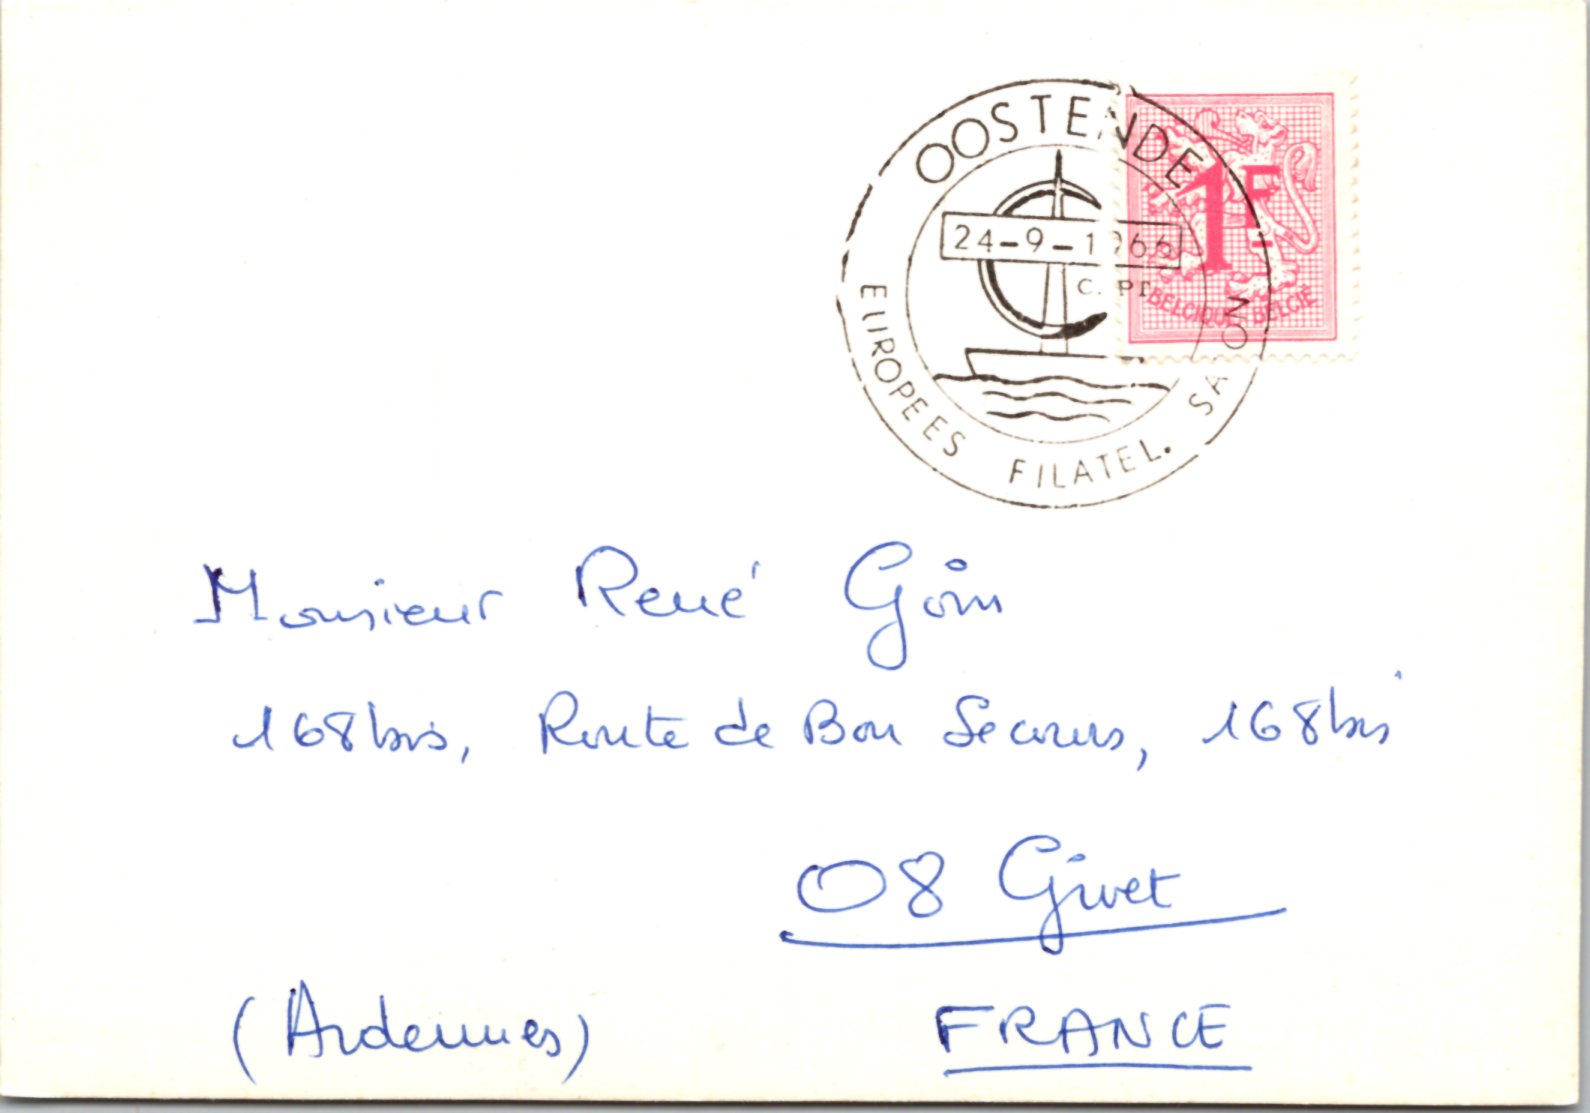 OOSTENDE
24-9-1966
EUROPEES FILATEL. SALON
1F
BELGIQUE-BELGIË
Monsieur René
168bis, Route de Bon Secours, 168bis
08 Givet
(Ardennes) FRANCE